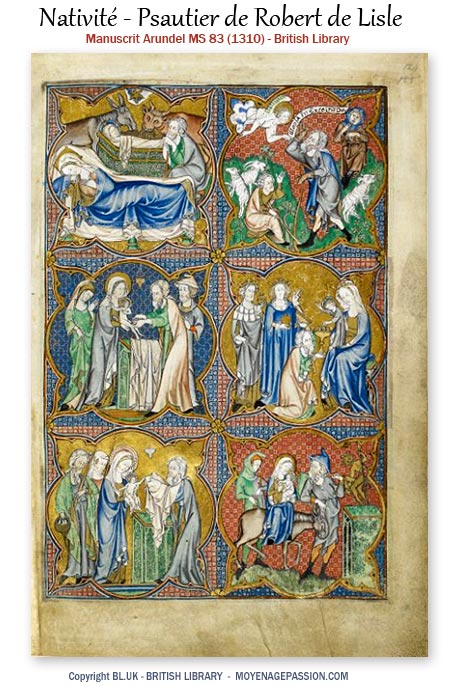 Nativité - Psautier de Robert de Lisle
Manuscrit Arundel MS 83 (1310) - British Library
Copyright BL.UK - BRITISH LIBRARY - MOYENAGEPASSION.COM